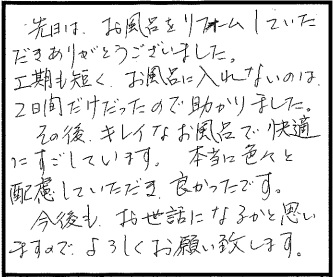 先日は、お風呂をリフォームしていた
だきありがとうございました。
工期も短く、お風呂に入れないのは、
2日間だけだったので助かりました。
その後、キレイなお風呂で快適
にすごしています。本当に色々と
配慮していただき、良かったです。
今後も、お世話になるかと思い
ますので、よろしくお願い致します。